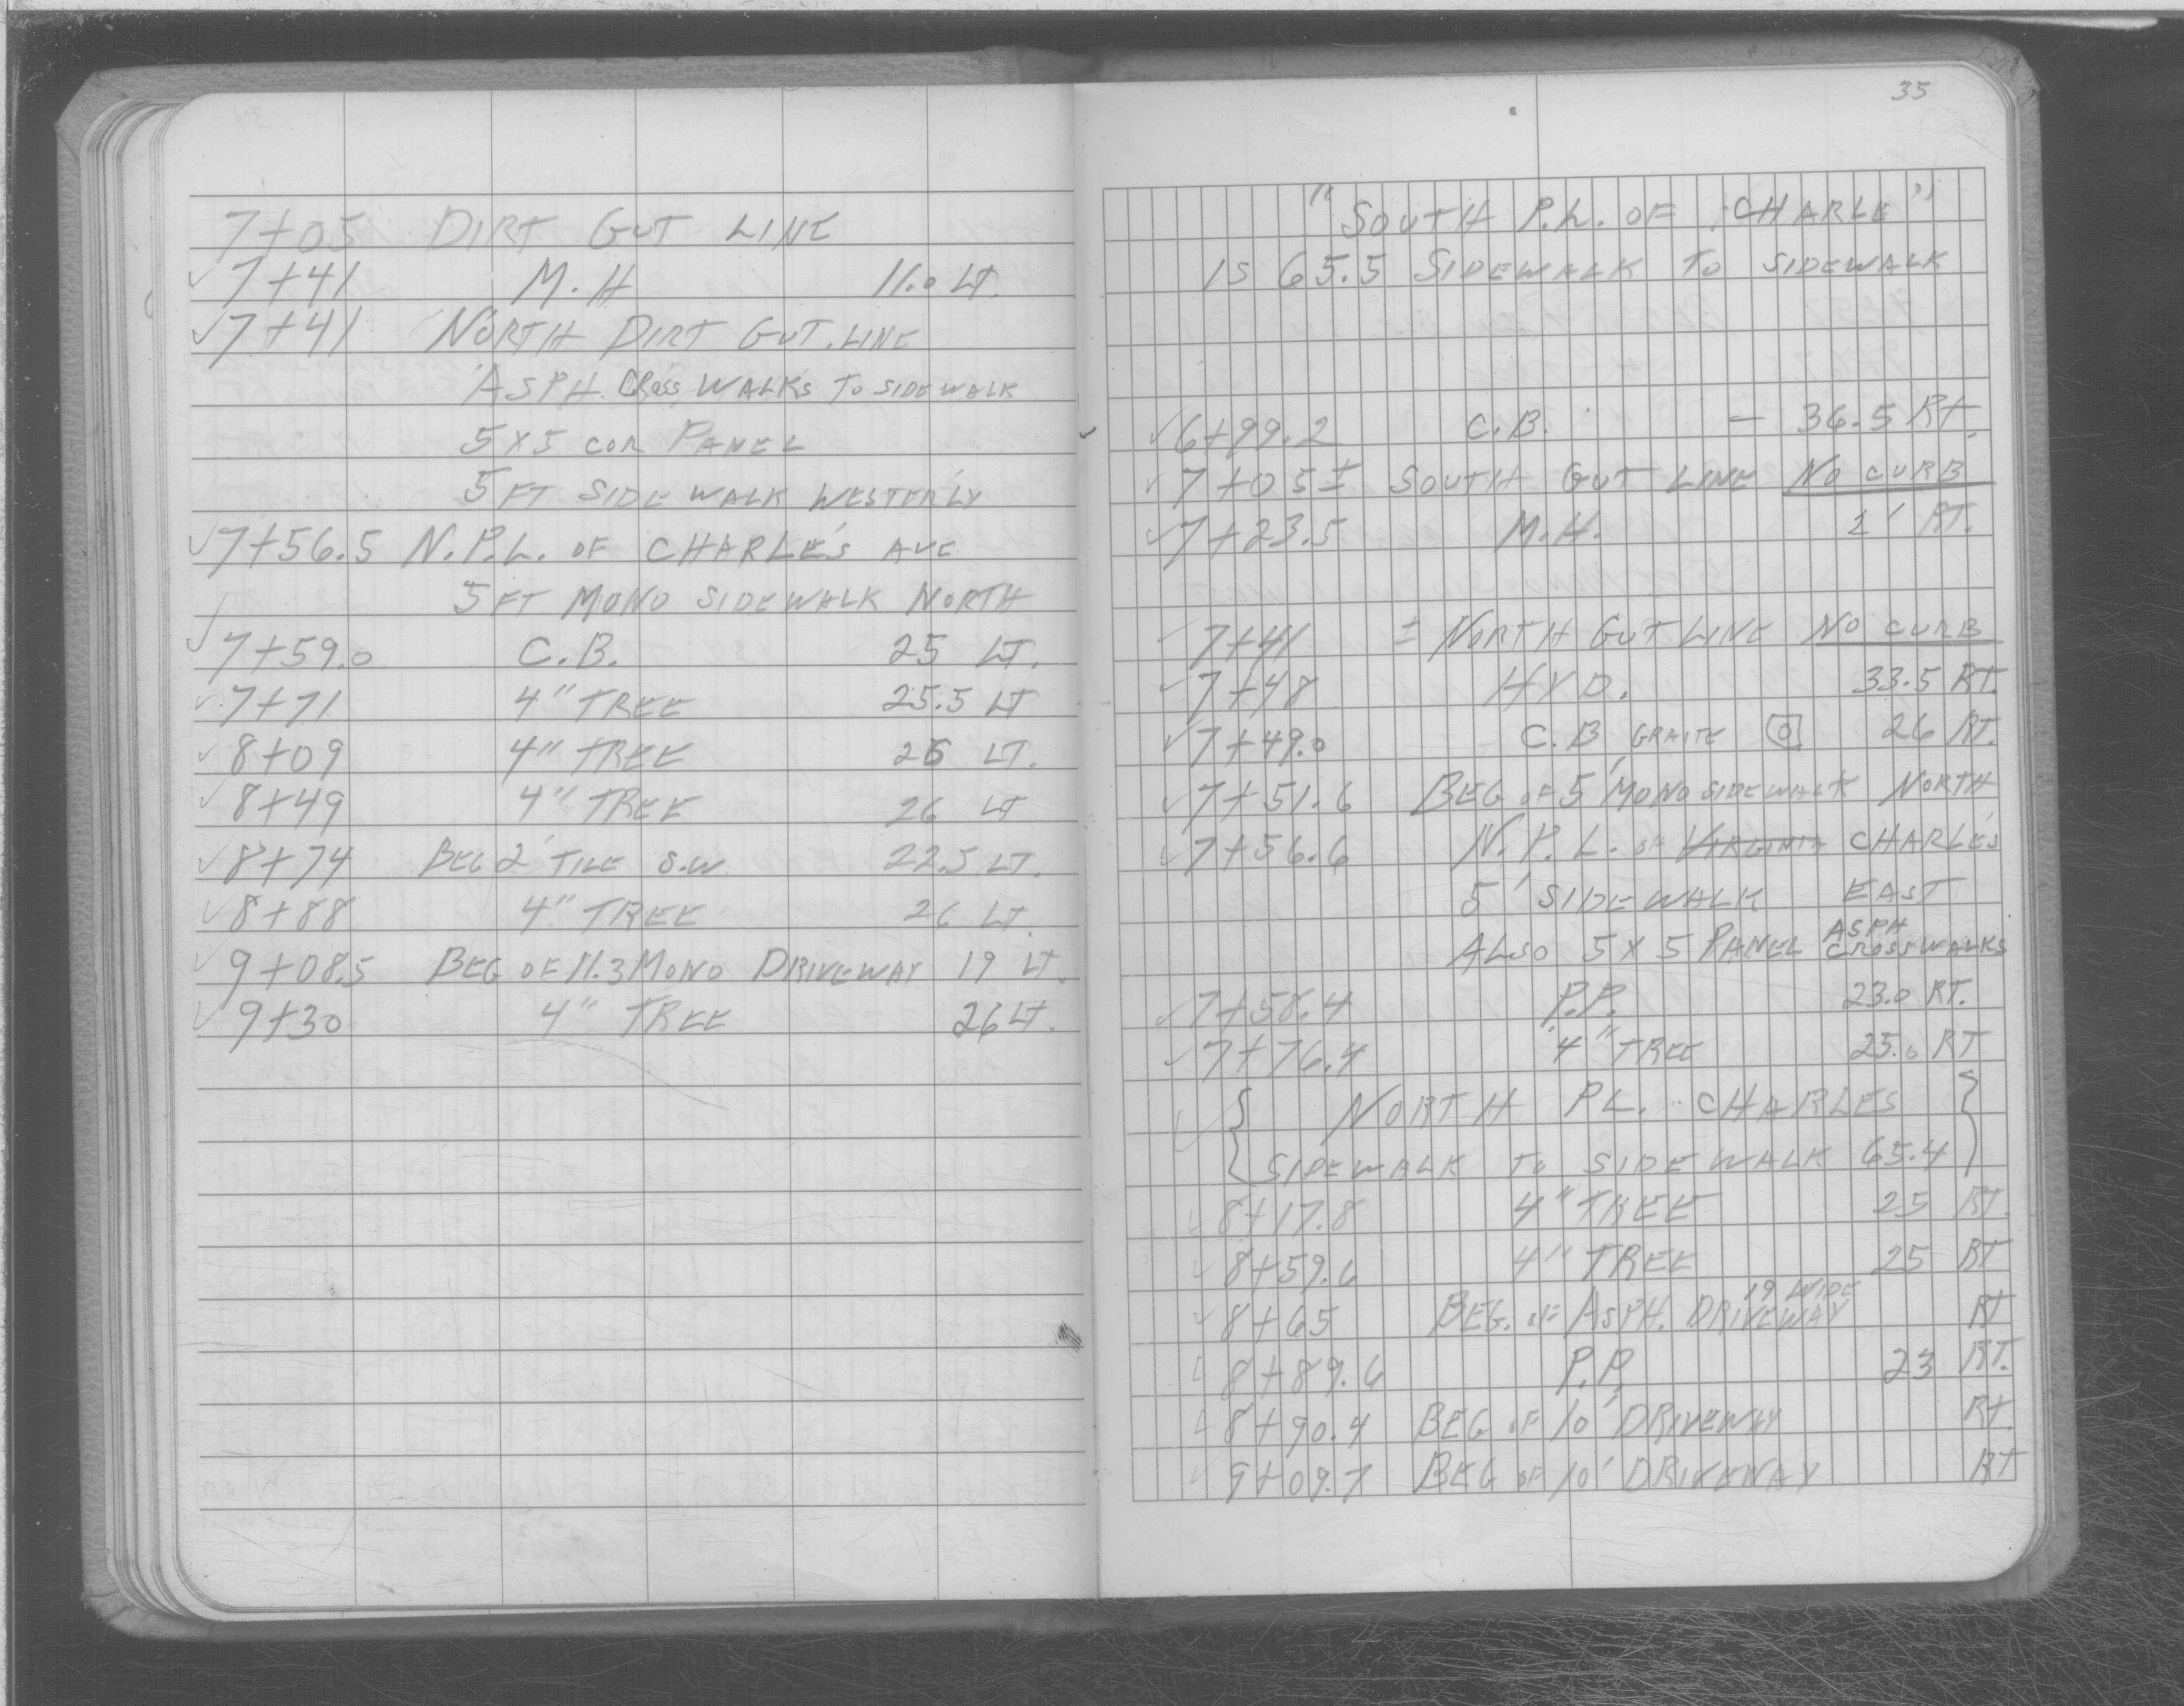 7+05 DIRT GUT LINE
✓ 7+41 M.H 11.0 LT.
✓ 7+41 NORTH DIRT GUT. LINE
ASPH. CROSS WALKS TO SIDEWALK
5 X 5 COR PANEL
5 FT SIDE WALK WESTERLY
✓ 7+56.5 N.P.L. OF CHARLE'S AVE
5 FT MONO SIDEWALK NORTH
✓ 7+59.0 C.B. 25 LT.
✓ 7+71 4" TREE 25.5 LT
✓ 8+09 4" TREE 26 LT.
✓ 8+49 4" TREE 26 LT
✓ 8+74 BEG 2' TILE S.W 22.5 LT.
✓ 8+88 4" TREE 26 LT.
✓ 9+08.5 BEG OF 11.3 MONO DRIVEWAY 19 LT.
✓ 9+30 4" TREE 26 LT.
35
"SOUTH P.L. OF CHARLE"
IS 65.5 SIDEWALK TO SIDEWALK
✓ 6+99.2 C.B. — 36.5 Rt.
✓ 7+05± SOUTH GUT LINE NO CURB
✓ 7+23.5 M.H. 2' RT.
✓ 7+41 ± NORTH GUT LINE NO CURB
✓ 7+48 HYD. 33.5 RT.
✓ 7+49.0 C.B, GRAITE 26 RT.
✓ 7+51.6 BEG OF 5' MONO SIDEWALK NORTH
✓ 7+56.6 N.P.L. OF VIRGINIA CHARLE'S
5' SIDEWALK EAST
ALSO 5 X 5 PANEL ASPH CROSSWALKS
✓ 7+58.4 P.P. 23.0 RT.
✓ 7+76.4 4" TREE 25.0 RT
✓ { NORTH PL. CHARLES }
{ SIDEWALK TO SIDE WALK 65.4 }
✓ 8+17.8 4" TREE 25 RT.
✓ 8+59.6 4" TREE 25 RT
✓ 8+65 BEG. OF ASPH. DRIVEWAY 19 WIDE RT
✓ 8+89.6 P.P. 23 RT.
✓ 8+90.4 BEG OF 10' DRIVEWAY Rt.
✓ 9+09.7 BEG OF 10' DRIVEWAY RT